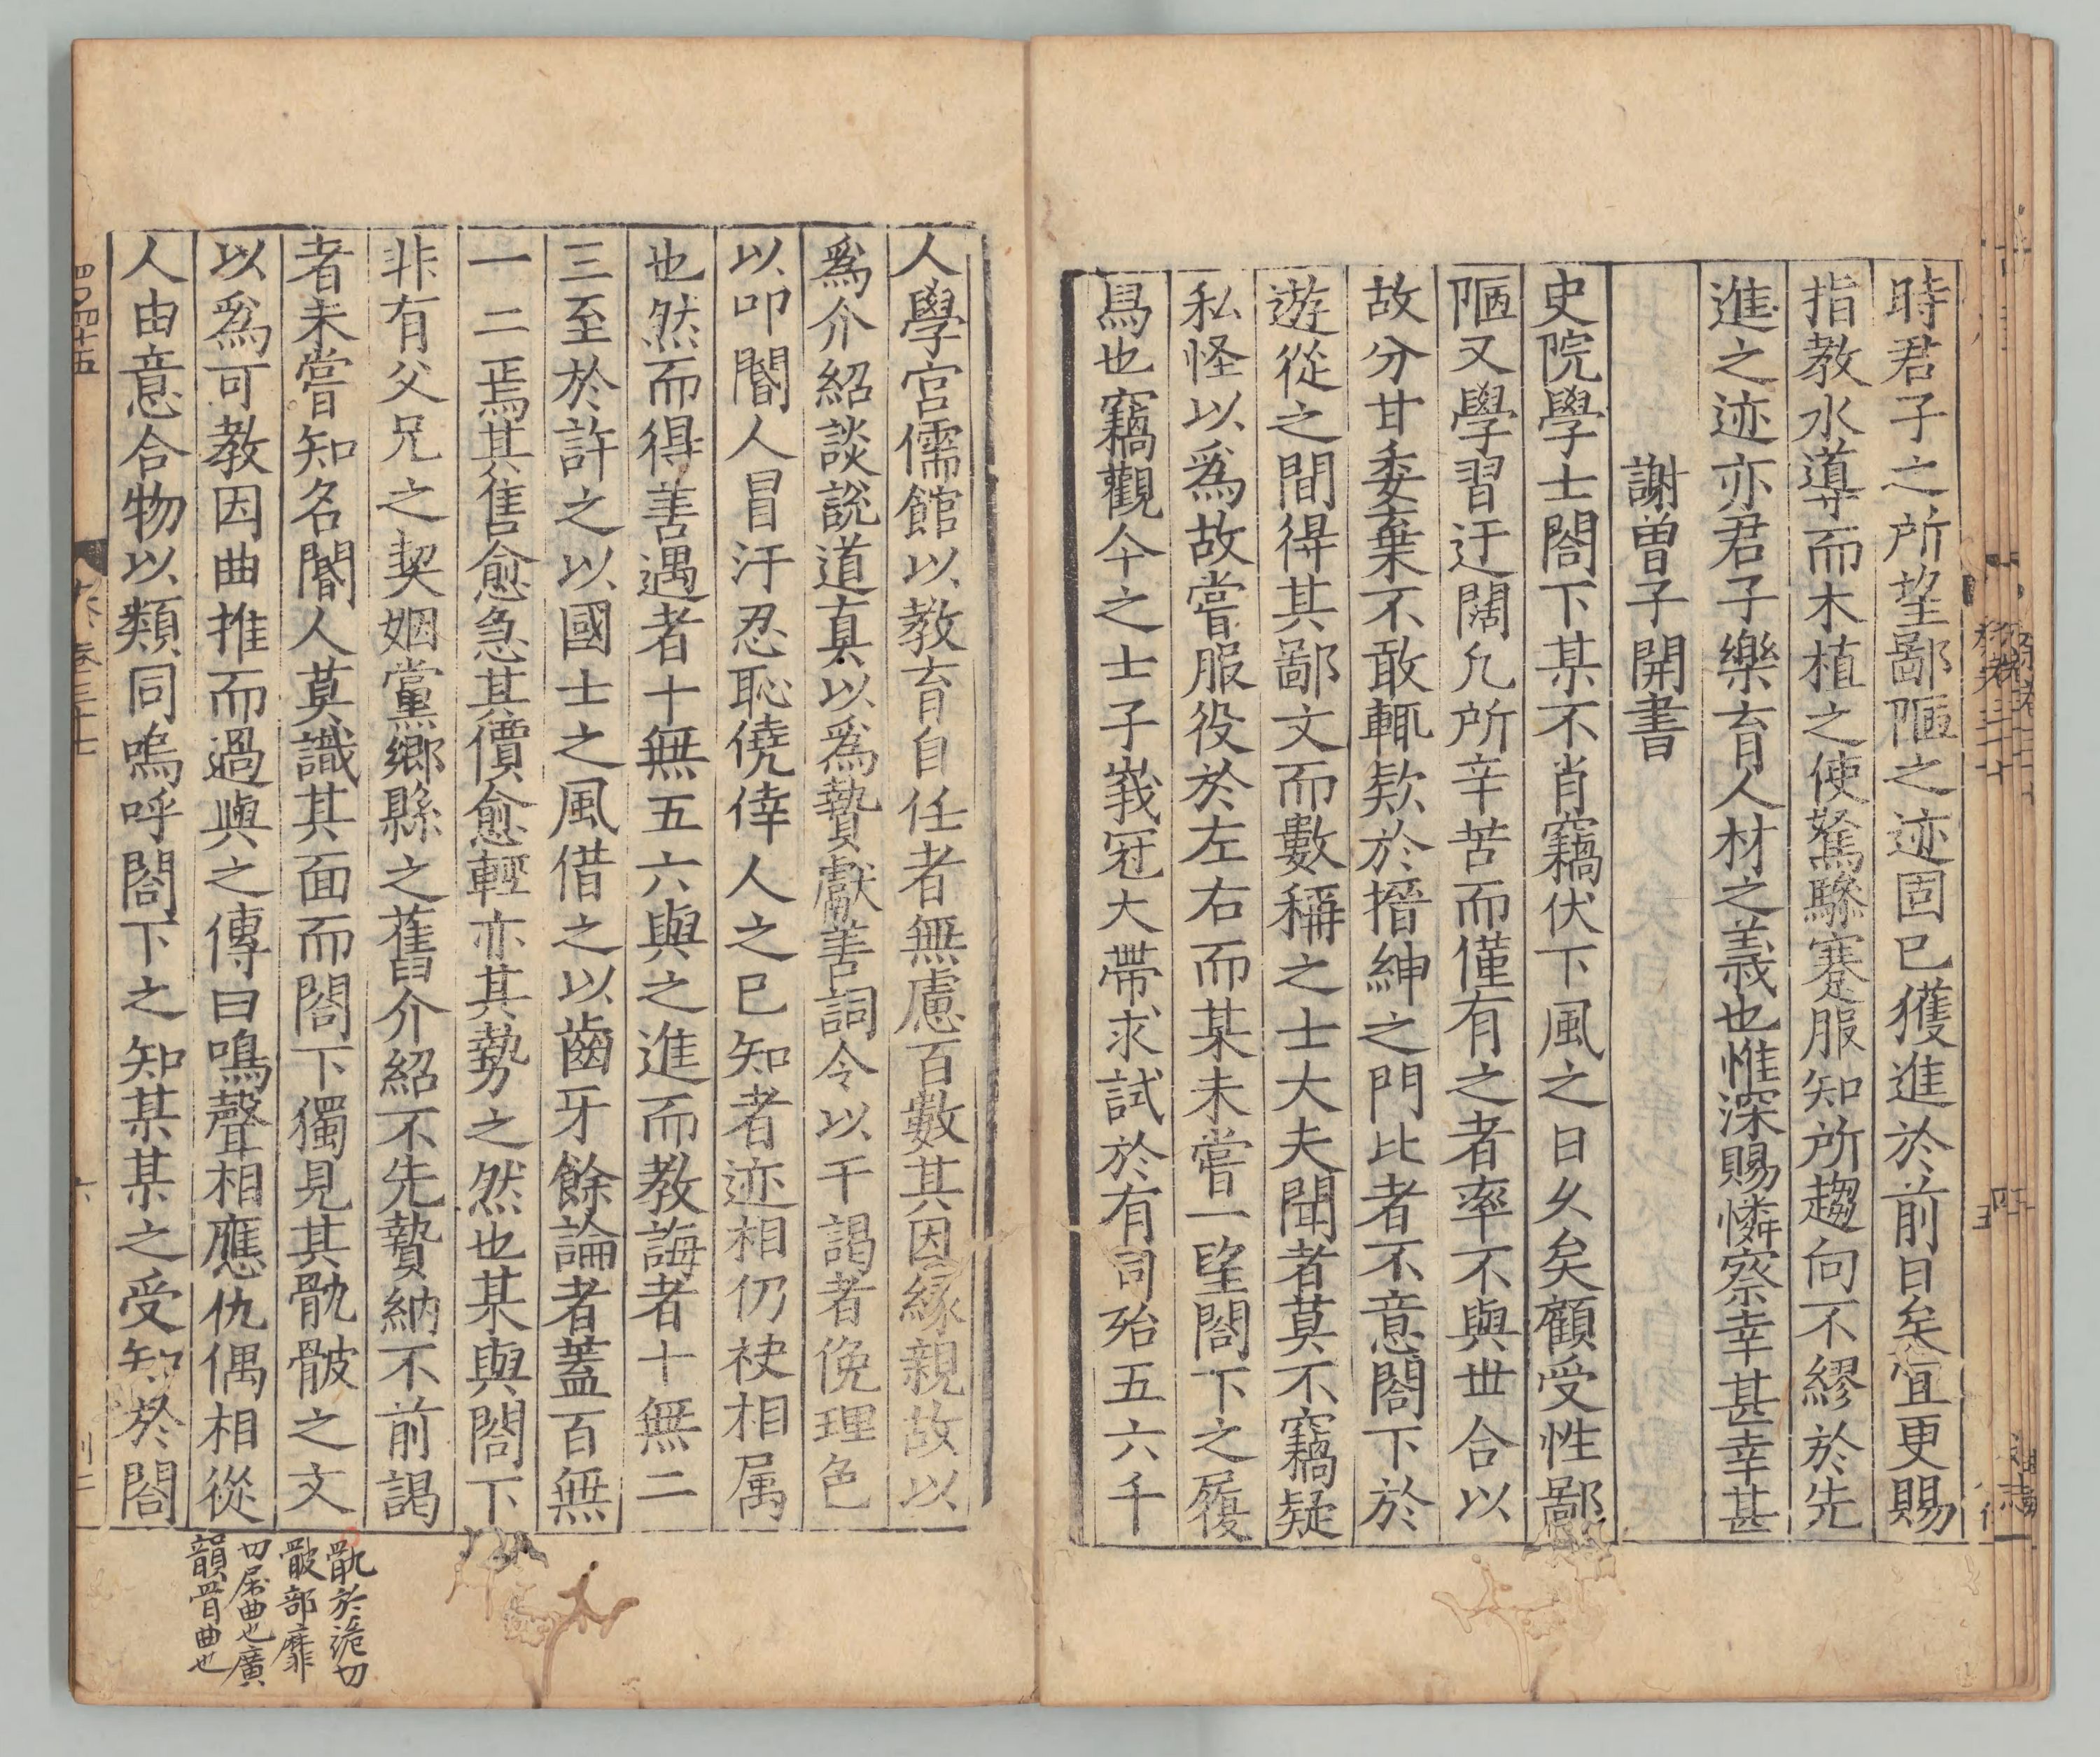 時君子之所望鄙陋之迹固已獲進於前日矣宜更賜
指教水導而木植之使駑驂蹇服知所趨向不繆於先
進之迹亦君子樂育人材之義也惟深賜憐察幸甚幸甚
謝曽子開書
史院學士閤下某不肖竊伏下風之日久矣顧受性鄙
陋又學習迂闊凢所辛苦而僅有之者率不與丗合以
故分甘委棄不敢輒欵於搢紳之門比者不意閤下於
遊從之間得其鄙文而數稱之士大夫聞者莫不竊疑
私怪以爲故嘗服役於左右而某未嘗一望閤下之履
舄也竊觀今之士子峩冠大帶求試於有司殆五六千
人學官儒館以教育自任者無慮百數其因緣親故以
爲介紹談說道真以爲贄獻善詞令以干謁者俛理色
以叩閽人冒汗忍恥僥倖人之已知者迹相仍袂相属
也然而得善遇者十無五六與之進而教誨者十無二
三至於許之以國士之風借之以齒牙餘論者蓋百無
一二焉其售愈急其價愈輕亦其勢之然也某與閤下
非有父兄之契姻黨鄉縣之舊介紹不先贄納不前謁
者未嘗知名閽人莫識其面而閤下獨見其骩骳之文
以爲可教因曲推而過與之傳曰鳴聲相應仇偶相從
人由意合物以類同嗚呼閤下之知某某之受知於閤
骩於詭切
骳部靡
切屈曲也廣
韻骨曲也
四ノ四十五
卷三十七
六